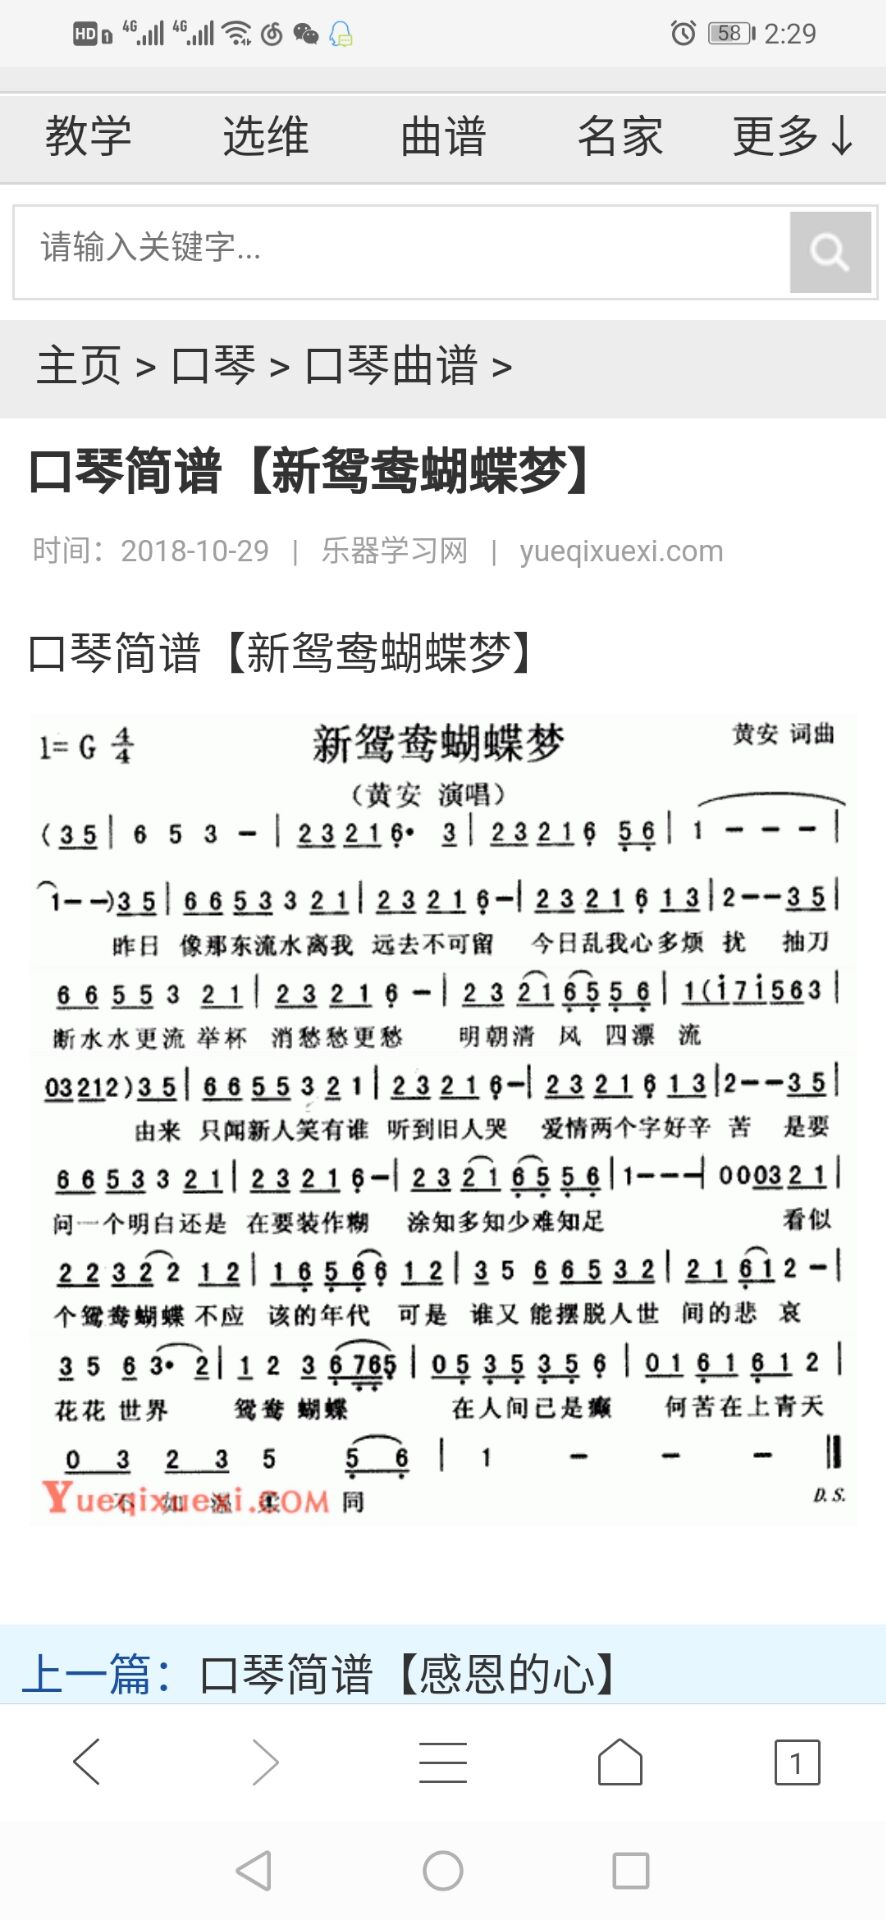 HD 1 4G 4G 58 2:29
教学 选维 曲谱 名家 更多↓
请输入关键字...
主页 > 口琴 > 口琴曲谱 >
口琴简谱【新鸳鸯蝴蝶梦】
时间：2018-10-29 | 乐器学习网 | yueqixuexi.com
口琴简谱【新鸳鸯蝴蝶梦】
1= G 4/4 新鸳鸯蝴蝶梦 黄安 词曲
（黄安 演唱）
( 3 5 | 6 5 3 - | 2 3 2 1 6· 3 | 2 3 2 1 6 5 6 | 1 - - - |
1 - - ) 3 5 | 6 6 5 3 3 2 1 | 2 3 2 1 6 - | 2 3 2 1 6 1 3 | 2 - - 3 5 |
昨日 像那东流水离我 远去不可留 今日乱我心多烦 扰 抽刀
6 6 5 5 3 2 1 | 2 3 2 1 6 - | 2 3 2 1 6 5 5 6 | 1 ( i 7 i 5 6 3 |
断水水更流 举杯 消愁愁更愁 明朝清 风 四漂 流
0 3 2 1 2 ) 3 5 | 6 6 5 5 3 2 1 | 2 3 2 1 6 - | 2 3 2 1 6 1 3 | 2 - - 3 5 |
由来 只闻新人笑有谁 听到旧人哭 爱情两个字好辛 苦 是要
6 6 5 3 3 2 1 | 2 3 2 1 6 - | 2 3 2 1 6 5 5 6 | 1 - - - | 0 0 0 3 2 1 |
问一个明白还是 在要装作糊 涂知多知少难知足 看似
2 2 3 2 2 1 2 | 1 6 5 6 6 1 2 | 3 5 6 6 5 3 2 | 2 1 6 1 2 - |
个鸳鸯蝴蝶 不应 该的年代 可是 谁又 能摆脱人世 间的悲 哀
3 5 6 3· 2 | 1 2 3 6 7 6 5 | 0 5 3 5 3 5 6 | 0 1 6 1 6 1 2 |
花花 世界 鸳鸯 蝴蝶 在人间已是癫 何苦在上青天
0 3 2 3 5 5 6 | 1 - - - ‖
不 如 温 柔 同
Yueqixuexi.COM
D.S.
上一篇：口琴简谱【感恩的心】
1